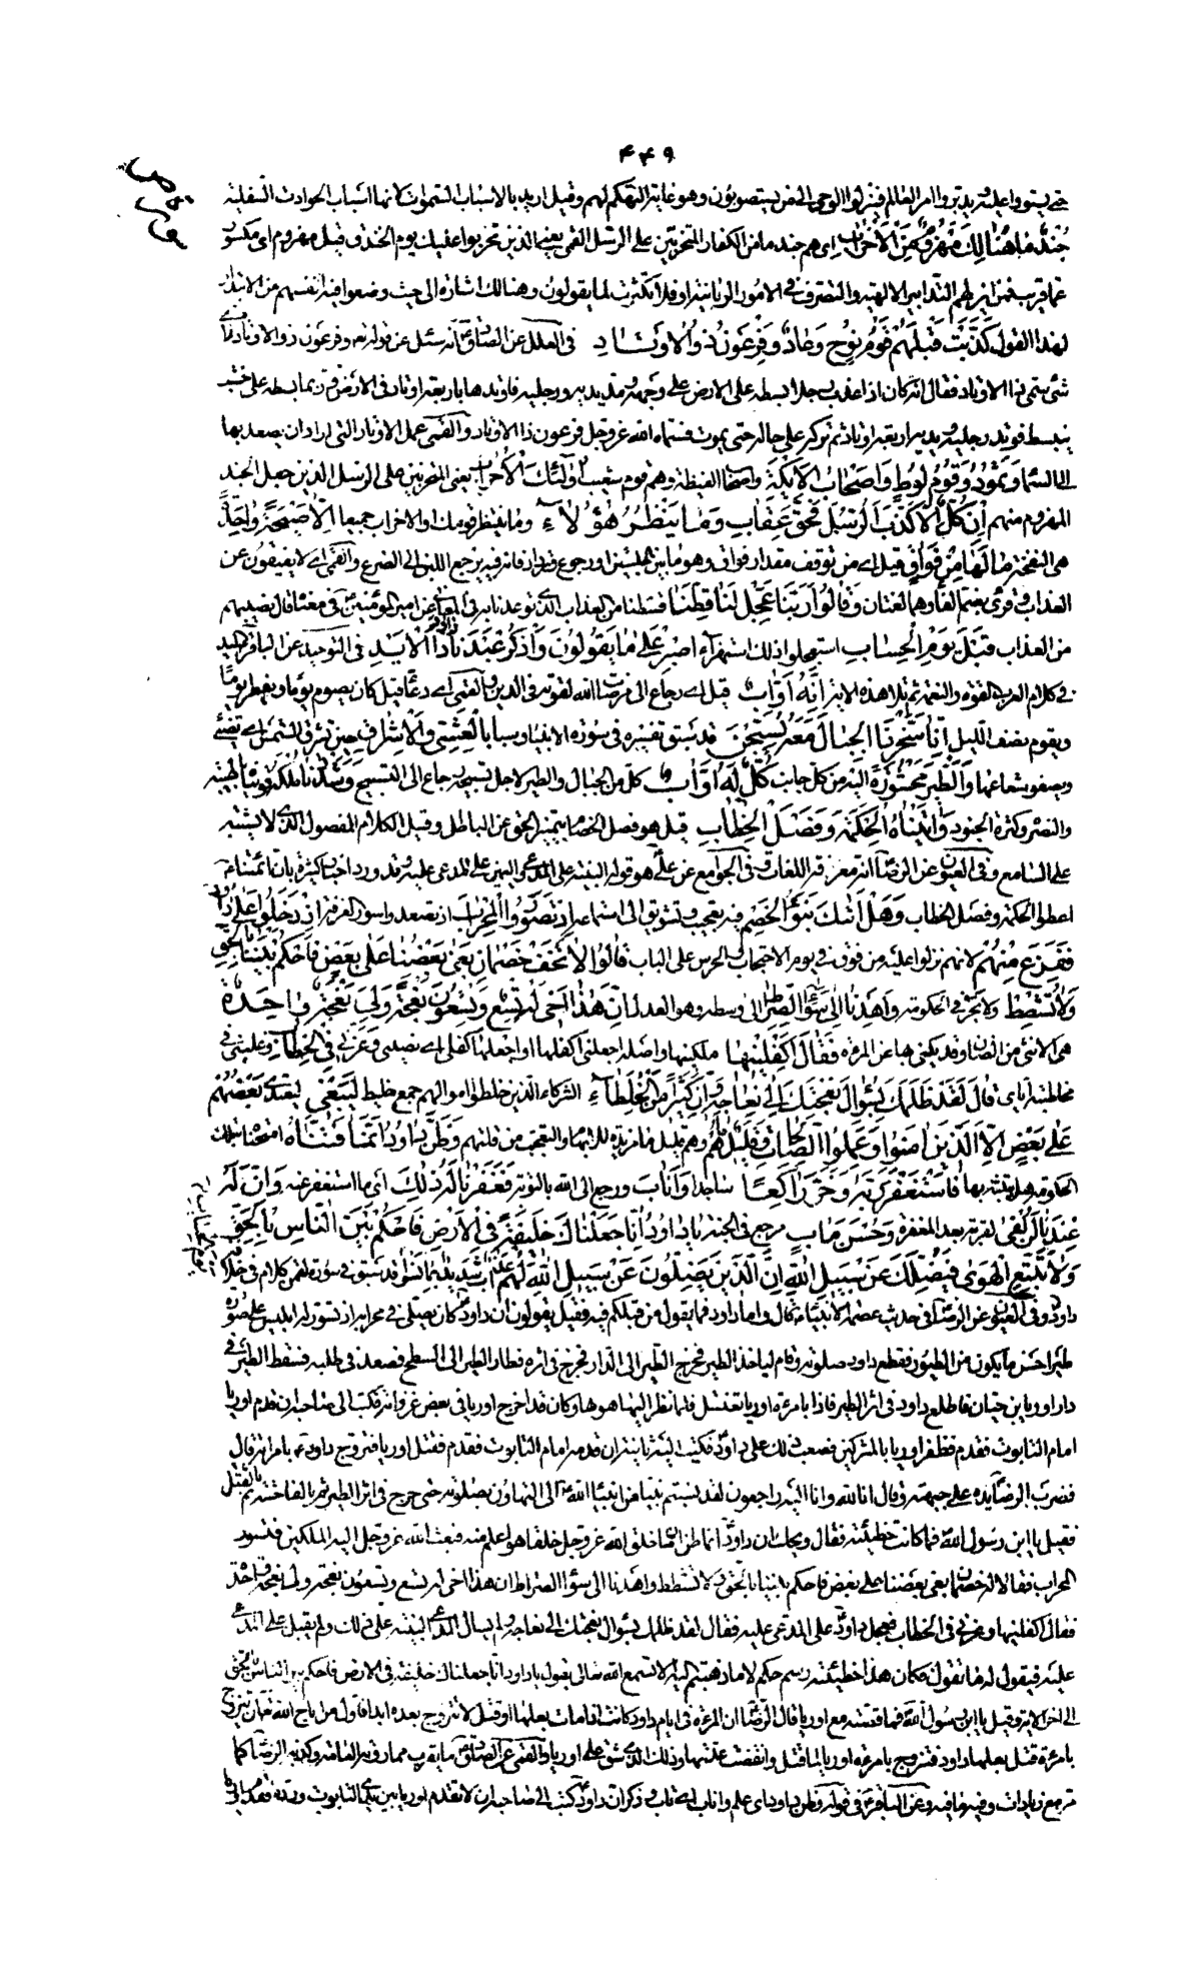 ۴۴۹
سورة ص
حتى يستووا عليه ويدبروا امر العالم فينزلوا الوحى الى من يستصوبون وهو غاية التهكم لهم وقيل اريد بالاسباب السموات لانها اسباب الحوادث السفلية
جُنْدٌ مَا هُنَالِكَ مَهْزُومٌ مِنَ الْأَحْزَابِ اى هم جند ما من الكفار المتحزبين على الرسل القمى يعنى الذين تحزبوا عليك يوم الخندق وقيل مهزوم اى مكسور
عما قريب فمن اين لهم التدابير الالهية والتصرف فى الامور الربانية او فلا تكترث لما يقولون وهنالك اشارة الى حيث وضعوا فيه انفسهم من الانتداب
لهذا القول كَذَّبَتْ قَبْلَهُمْ قَوْمُ نُوحٍ وَعَادٌ وَفِرْعَوْنُ ذُو الْأَوْتَادِ فى العلل عن الصادق ع انه سئل عن قوله تعالى وفرعون ذو الاوتاد لاى
شئ سمى ذا الاوتاد فقال لانه كان اذا عذب رجلا بسطه على الارض على وجهه ومد يديه ورجليه فاوتدها باربعة اوتاد فى الارض وربما بسطه على خشب
منبسط فوتد رجليه ويديه باربعة اوتاد ثم تركه على حاله حتى يموت فسماه الله عز وجل فرعون ذا الاوتاد والقمى عمل الاوتاد التى اراد ان يصعد بها
الى السماء وَثَمُودُ وَقَوْمُ لُوطٍ وَأَصْحَابُ الْأَيْكَةِ واصحاب الغيضة وهم قوم شعيب أُولَئِكَ الْأَحْزَابُ يعنى المتحزبين على الرسل الذين جعل الجند
المهزوم منهم إِنْ كُلٌّ إِلَّا كَذَّبَ الرُّسُلَ فَحَقَّ عِقَابِ وَمَا يَنْظُرُ هَؤُلَاءِ وما ينتظر قومك او الاحزاب جميعا إِلَّا صَيْحَةً وَاحِدَةً
هى النفخة مَا لَهَا مِنْ فَوَاقٍ قيل اى من توقف مقدار فواق وهو ما بين الحلبتين او رجوع وترداد فانه فيه يرجع اللبن الى الضرع والقمى اى لا يفيقون عن
العذاب وقرئ بضم الفاء وهما لغتان وَقَالُوا رَبَّنَا عَجِّلْ لَنَا قِطَّنَا قسطنا من العذاب الذى توعدنا به فى المعانى عن امير المؤمنين ع فى معناه قال نصيبهم
من العذاب قَبْلَ يَوْمِ الْحِسَابِ استعجلوا ذلك استهزاء اصْبِرْ عَلَى مَا يَقُولُونَ وَاذْكُرْ عَبْدَنَا دَاوُدَ ذَا الْأَيْدِ فى التوحيد عن الباقر ع اليد
فى كلام العرب القوة والنعمة ثم تلا هذه الاية إِنَّهُ أَوَّابٌ قيل اى رجاع الى مرضات الله لقوته فى الدين والقمى اى دعاء قيل كان يصوم يوما ويفطر يوما
ويقوم نصف الليل إِنَّا سَخَّرْنَا الْجِبَالَ مَعَهُ يُسَبِّحْنَ قد سبق تفسيره فى سورة الانبياء وسبا بِالْعَشِيِّ وَالْإِشْرَاقِ حين تشرق الشمس اى تضئ
ويصفو شعاعها وَالطَّيْرَ مَحْشُورَةً اليه من كل جانب كُلٌّ لَهُ أَوَّابٌ كل من الجبال والطير لاجل تسبيحه رجاع الى التسبيح وَشَدَدْنَا مُلْكَهُ وقويناه بالهيبة
والنصر وكثرة الجنود وَآتَيْنَاهُ الْحِكْمَةَ وَفَصْلَ الْخِطَابِ قيل هو فصل الخصام بتمييز الحق عن الباطل وقيل الكلام المفصول الذى لا يشتبه
على السامع وفى العيون عن الرضا ع انه معرفة اللغات وفى الجوامع عن على ع هو قوله البينة على المدعى واليمين على المدعى عليه وقد ورد اخبار كثيرة بان ائمتنا ع
اعطوا الحكمة وفصل الخطاب وَهَلْ أَتَاكَ نَبَأُ الْخَصْمِ فيه تعجيب وتشويق الى استماعه إِذْ تَسَوَّرُوا الْمِحْرَابَ اذ تصعدوا سور الغرفة إِذْ دَخَلُوا عَلَى دَاوُدَ
فَفَزِعَ مِنْهُمْ لانهم نزلوا عليه من فوق فى يوم الاحتجاب والحرس على الباب قَالُوا لَا تَخَفْ خَصْمَانِ بَغَى بَعْضُنَا عَلَى بَعْضٍ فَاحْكُمْ بَيْنَنَا بِالْحَقِّ
وَلَا تُشْطِطْ ولا تجر فى الحكومة وَاهْدِنَا إِلَى سَوَاءِ الصِّرَاطِ الى وسطه وهو العدل إِنَّ هَذَا أَخِي لَهُ تِسْعٌ وَتِسْعُونَ نَعْجَةً وَلِيَ نَعْجَةٌ وَاحِدَةٌ
هى الانثى من الضان وقد يكنى بها عن المرءة فَقَالَ أَكْفِلْنِيهَا ملكنيها واصله اجعلنى اكفلها او اجعلها كفلى اى نصيبى وَعَزَّنِي فِي الْخِطَابِ وغلبنى فى
مخاطبته اياى قَالَ لَقَدْ ظَلَمَكَ بِسُؤَالِ نَعْجَتِكَ إِلَى نِعَاجِهِ وَإِنَّ كَثِيرًا مِنَ الْخُلَطَاءِ الشركاء الذين خلطوا اموالهم جمع خليط لَيَبْغِي ليتعدى بَعْضُهُمْ
عَلَى بَعْضٍ إِلَّا الَّذِينَ آمَنُوا وَعَمِلُوا الصَّالِحَاتِ وَقَلِيلٌ مَا هُمْ وهم قليل وما مزيدة للابهام والتعجب من قلتهم وَظَنَّ دَاوُدُ أَنَّمَا فَتَنَّاهُ امتحناه بتلك
الحكومة هل يتنبه بها فَاسْتَغْفَرَ رَبَّهُ وَخَرَّ رَاكِعًا ساجدا وَأَنَابَ ورجع الى الله بالتوبة فَغَفَرْنَا لَهُ ذَلِكَ اى ما استغفر عنه وَإِنَّ لَهُ
عِنْدَنَا لَزُلْفَى لقربة بعد المغفرة وَحُسْنَ مَآبٍ مرجع فى الجنة يَا دَاوُدُ إِنَّا جَعَلْنَاكَ خَلِيفَةً فِي الْأَرْضِ فَاحْكُمْ بَيْنَ النَّاسِ بِالْحَقِّ
وَلَا تَتَّبِعِ الْهَوَى فَيُضِلَّكَ عَنْ سَبِيلِ اللَّهِ إِنَّ الَّذِينَ يَضِلُّونَ عَنْ سَبِيلِ اللَّهِ لَهُمْ عَذَابٌ شَدِيدٌ بِمَا نَسُوا قد سبق فى سورة لقمن كلام فى خلافة
يوم الحساب
داود ع وفى العيون عن الرضا ع فى حديث عصمة الانبياء ع قال واما داود فما يقول من قبلكم فيه فقيل يقولون ان داود ع كان يصلى فى محرابه اذ تصور له ابليس على صورة
طير احسن ما يكون من الطيور فقطع داود صلوته وقام لياخذ الطير فخرج الطير الى الدار فخرج فى اثره فطار الطير الى السطح فصعد فى طلبه فسقط الطير فى
دار اوريا بن حيان فاطلع داود فى اثر الطير فاذا بامرءة اوريا تغتسل فلما نظر اليها هويها وكان قد اخرج اوريا فى بعض غزواته فكتب الى صاحبه ان قدم اوريا
امام التابوت فقدم فظفر اوريا بالمشركين فصعب ذلك على داود ع فكتب اليه ثانية ان قدمه امام التابوت فقدم فقتل اوريا فتزوج داود ع بامراته قال
فضرب الرضا ع يده على جبهته وقال انا لله وانا اليه راجعون لقد نسبتم نبيا من انبياء الله الى التهاون بصلوته حتى خرج فى اثر الطير ثم بالفاحشة ثم بالقتل
فقيل يا ابن رسول الله فما كانت خطيئته فقال ويحك ان داود ع انما ظن ان ما خلق الله عز وجل خلقا هو اعلم منه فبعث الله عز وجل اليه الملكين فتسورا
المحراب فقالا له خصمان بغى بعضنا على بعض فاحكم بيننا بالحق ولا تشطط واهدنا الى سواء الصراط ان هذا اخى له تسع وتسعون نعجة ولى نعجة واحدة
فقال اكفلنيها وعزنى فى الخطاب فعجل داود ع على المدعى عليه فقال لقد ظلمك بسؤال نعجتك الى نعاجه ولم يسال المدعى البينة على ذلك ولم يقبل على المدعى
عليه فيقول له ما تقول فكان هذا خطيئة رسم حكم لا ما ذهبتم اليه الا تسمع الله تعالى يقول يا داود انا جعلناك خليفة فى الارض فاحكم بين الناس بالحق
الى اخر الاية وقيل يا ابن رسول الله فما قصته مع اوريا قال الرضا ع ان المرءة فى ايام داود كانت اذا مات بعلها او قتل لا تتزوج بعده ابدا فاول من اباح الله له ان يتزوج
بامرءة قتل بعلها داود فتزوج بامرءة اوريا لما قتل وانقضت عدتها وذلك الذى شق على اوريا والقمى عن الصادق ع ما يقرب مما روته العامة وكذبه الرضا ع كما
مر مع زيادات وفيه ما فيه وعن الباقر ع فى قوله وظن داود اى علم واناب اى تاب وذكر ان داود ع كتب الى صاحبه ان لا تقدم اوريا بين يدى التابوت ورده فقدم اوريا